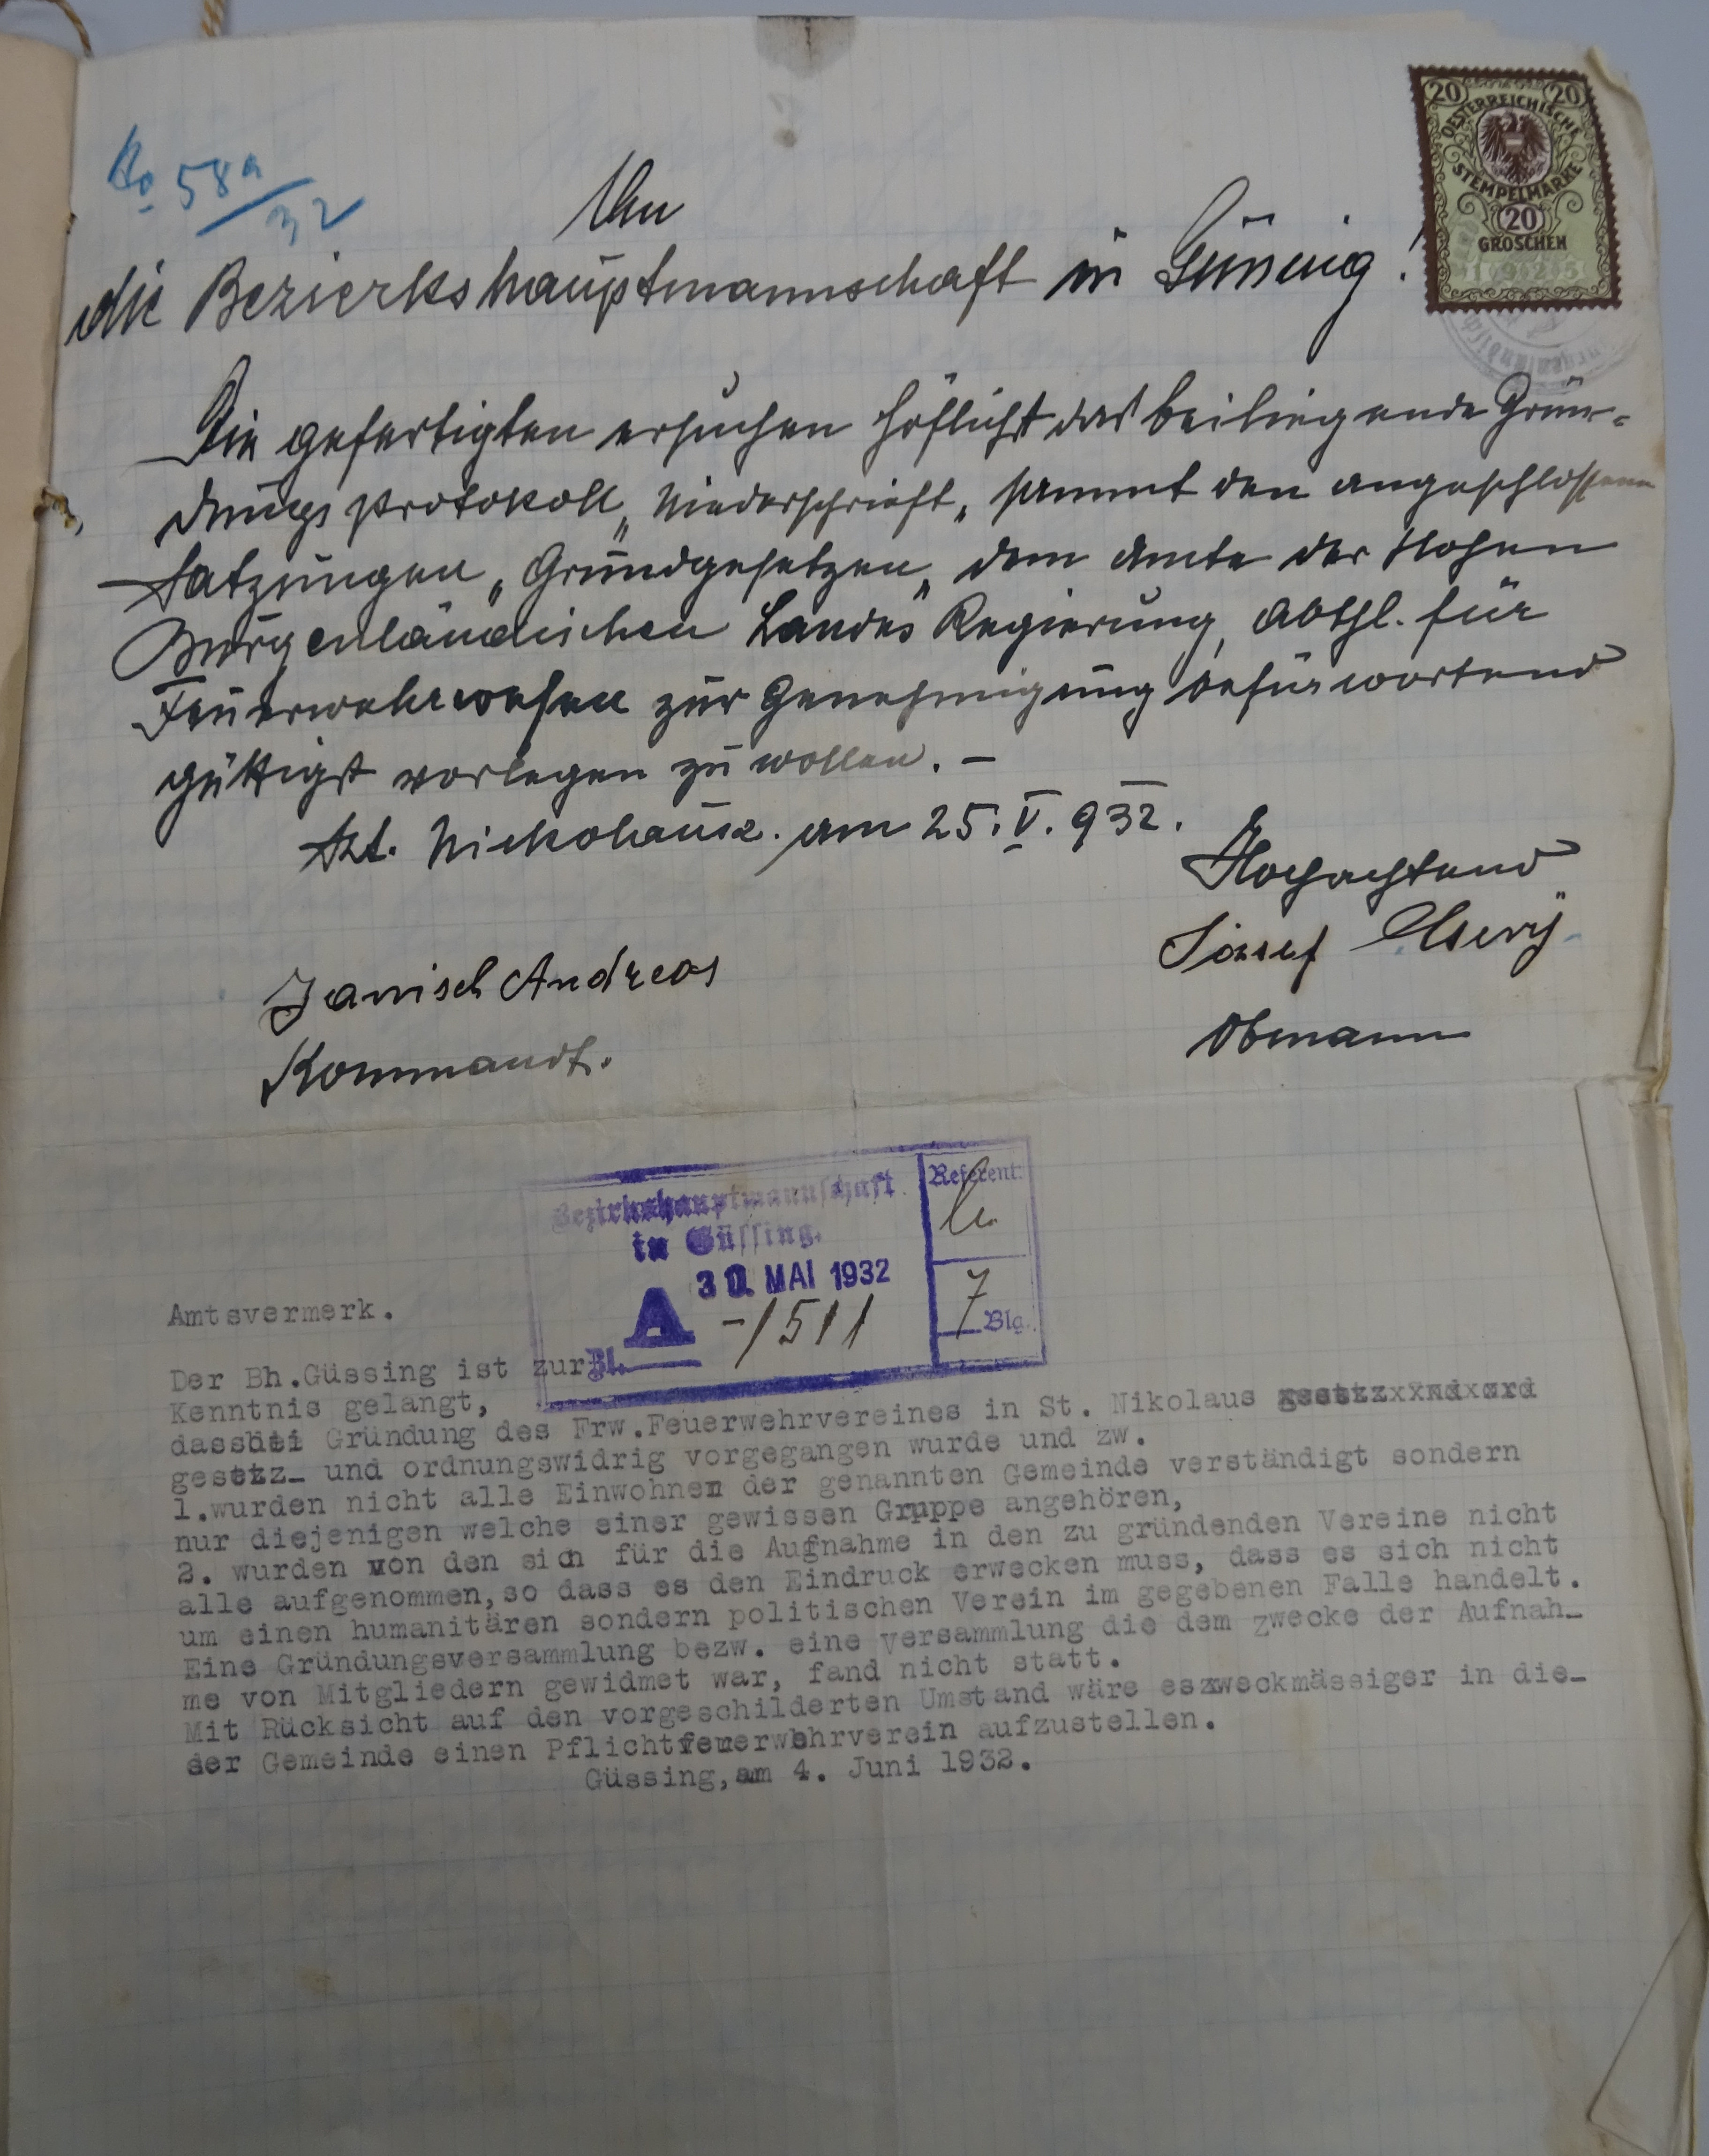 No 58a/32
20 20
OESTERREICHISCHE
STEMPELMARKE
20
GROSCHEN
1925
An
die Bezierkshauptmannschaft in Güssing!
Die gefertigten ersuchen höflichst das beiliegende Grün-
dungsprotokoll „Niederschrieft„ sammt den angeschlossenen
Satzungen „Gründgesetzen„ dem Amte der Hohen
Burgenländischen Landes Regierung, Abthl. für
Feuerwehrwesen zur Genehmigung befürwortend
güttigst vorlegen zu wollen. –
Skt. Nickolaus. am 25. V. 932.
Hochachtend
József
Janisch Andreas
Obmann
Kommandt.
Bezirkshauptmannschaft
in Güssing.
Referent:
30. MAI 1932
A -1511
7 Blg.
Bl.
Amtsvermerk.
Der Bh.Güssing ist zur
Kenntnis gelangt,
dass bei Gründung des Frw.Feuerwehrvereines in St. Nikolaus
gesetz- und ordnungswidrig vorgegangen wurde und zw.
1.wurden nicht alle Einwohnen der genannten Gemeinde verständigt sondern
nur diejenigen welche einer gewissen Gruppe angehören,
2. wurden von den sich für die Aufnahme in den zu gründenden Vereine nicht
alle aufgenommen,so dass es den Eindruck erwecken muss, dass es sich nicht
um einen humanitären sondern politischen Verein im gegebenen Falle handelt.
Eine Gründungsversammlung bezw. eine Versammlung die dem zwecke der Aufnah-
me von Mitgliedern gewidmet war, fand nicht statt.
Mit Rücksicht auf den vorgeschilderten Umstand wäre eszweckmässiger in die-
ser Gemeinde einen Pflichtfeuerwehrverein aufzustellen.
Güssing,am 4. Juni 1932.